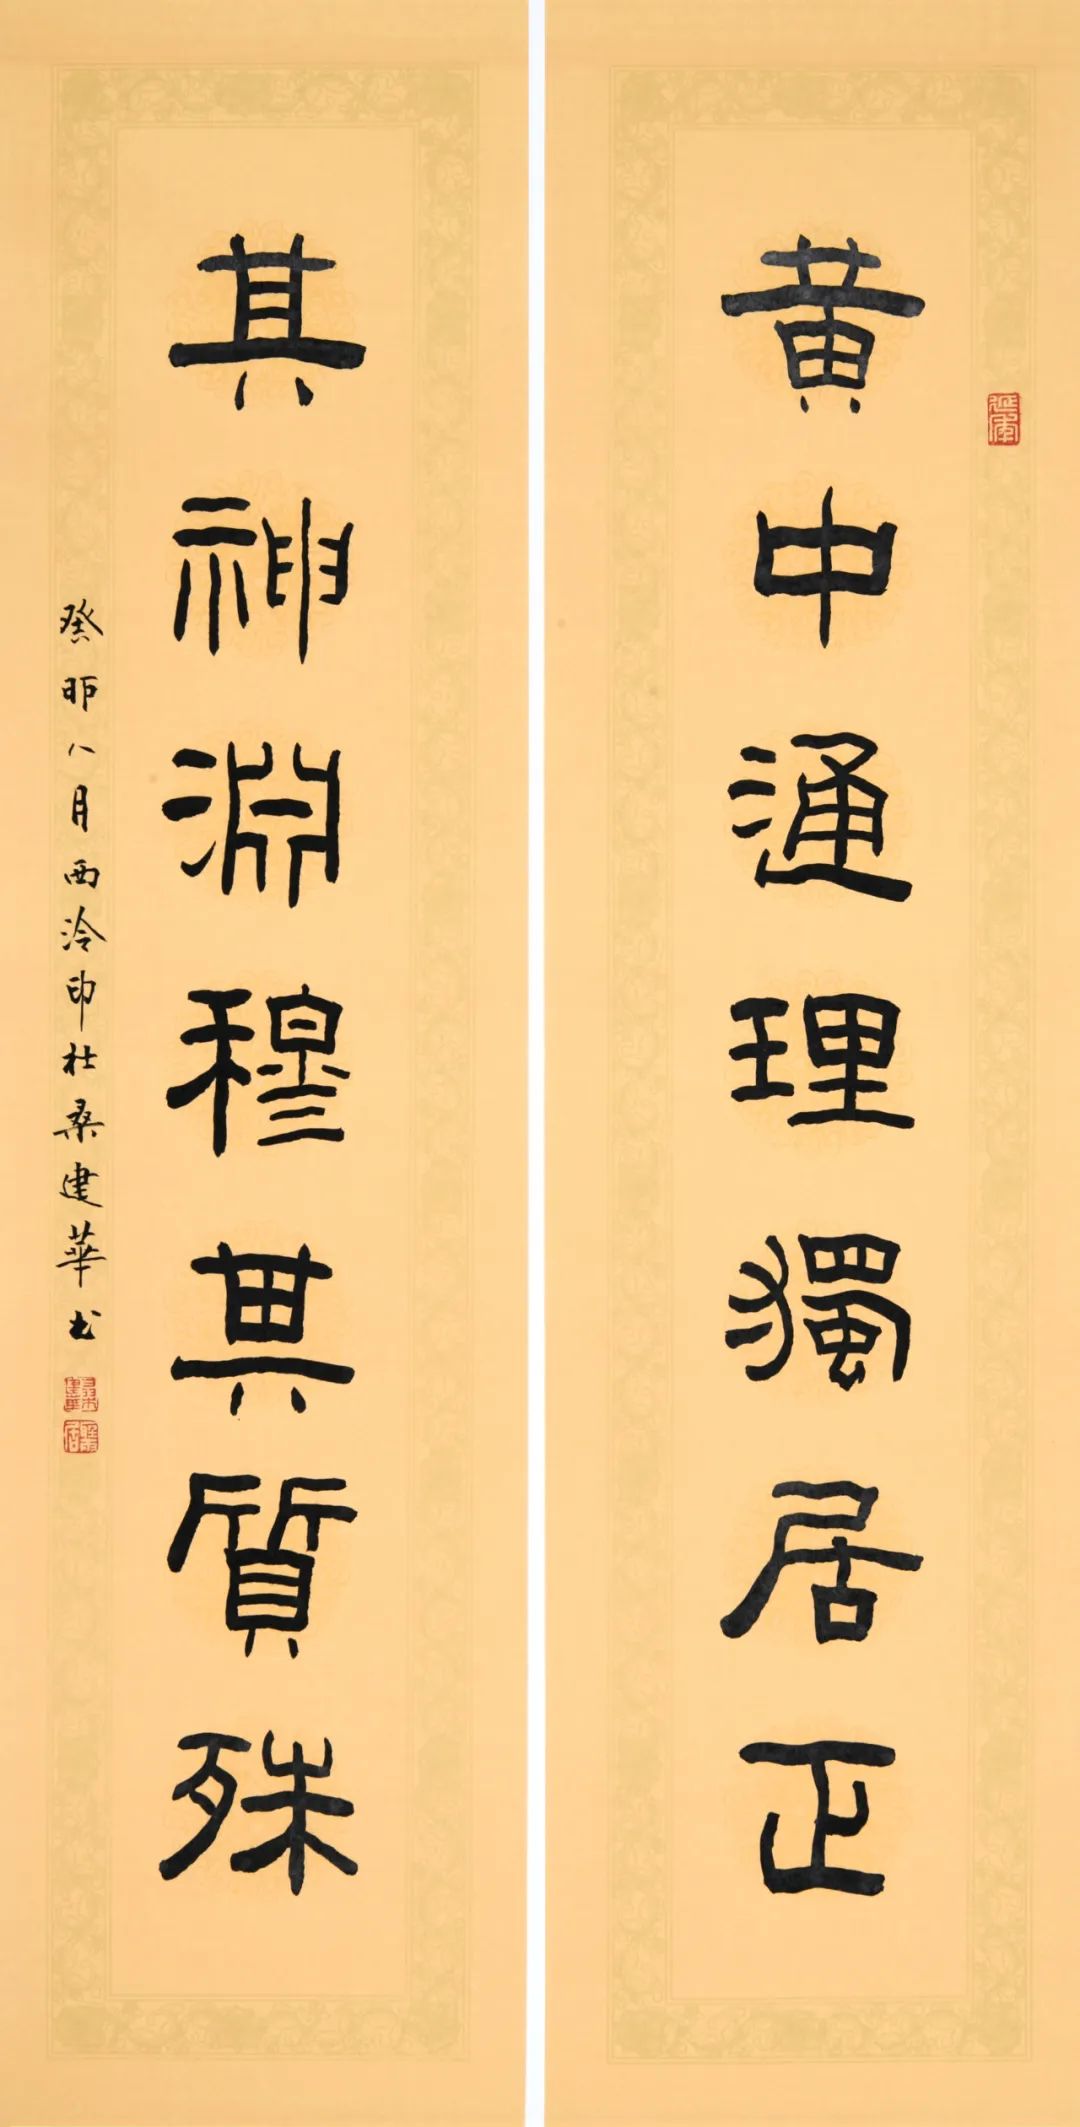 黄中通理獨居正
延年
其神淵穆其質殊
癸卯八月西泠印社桑建華书